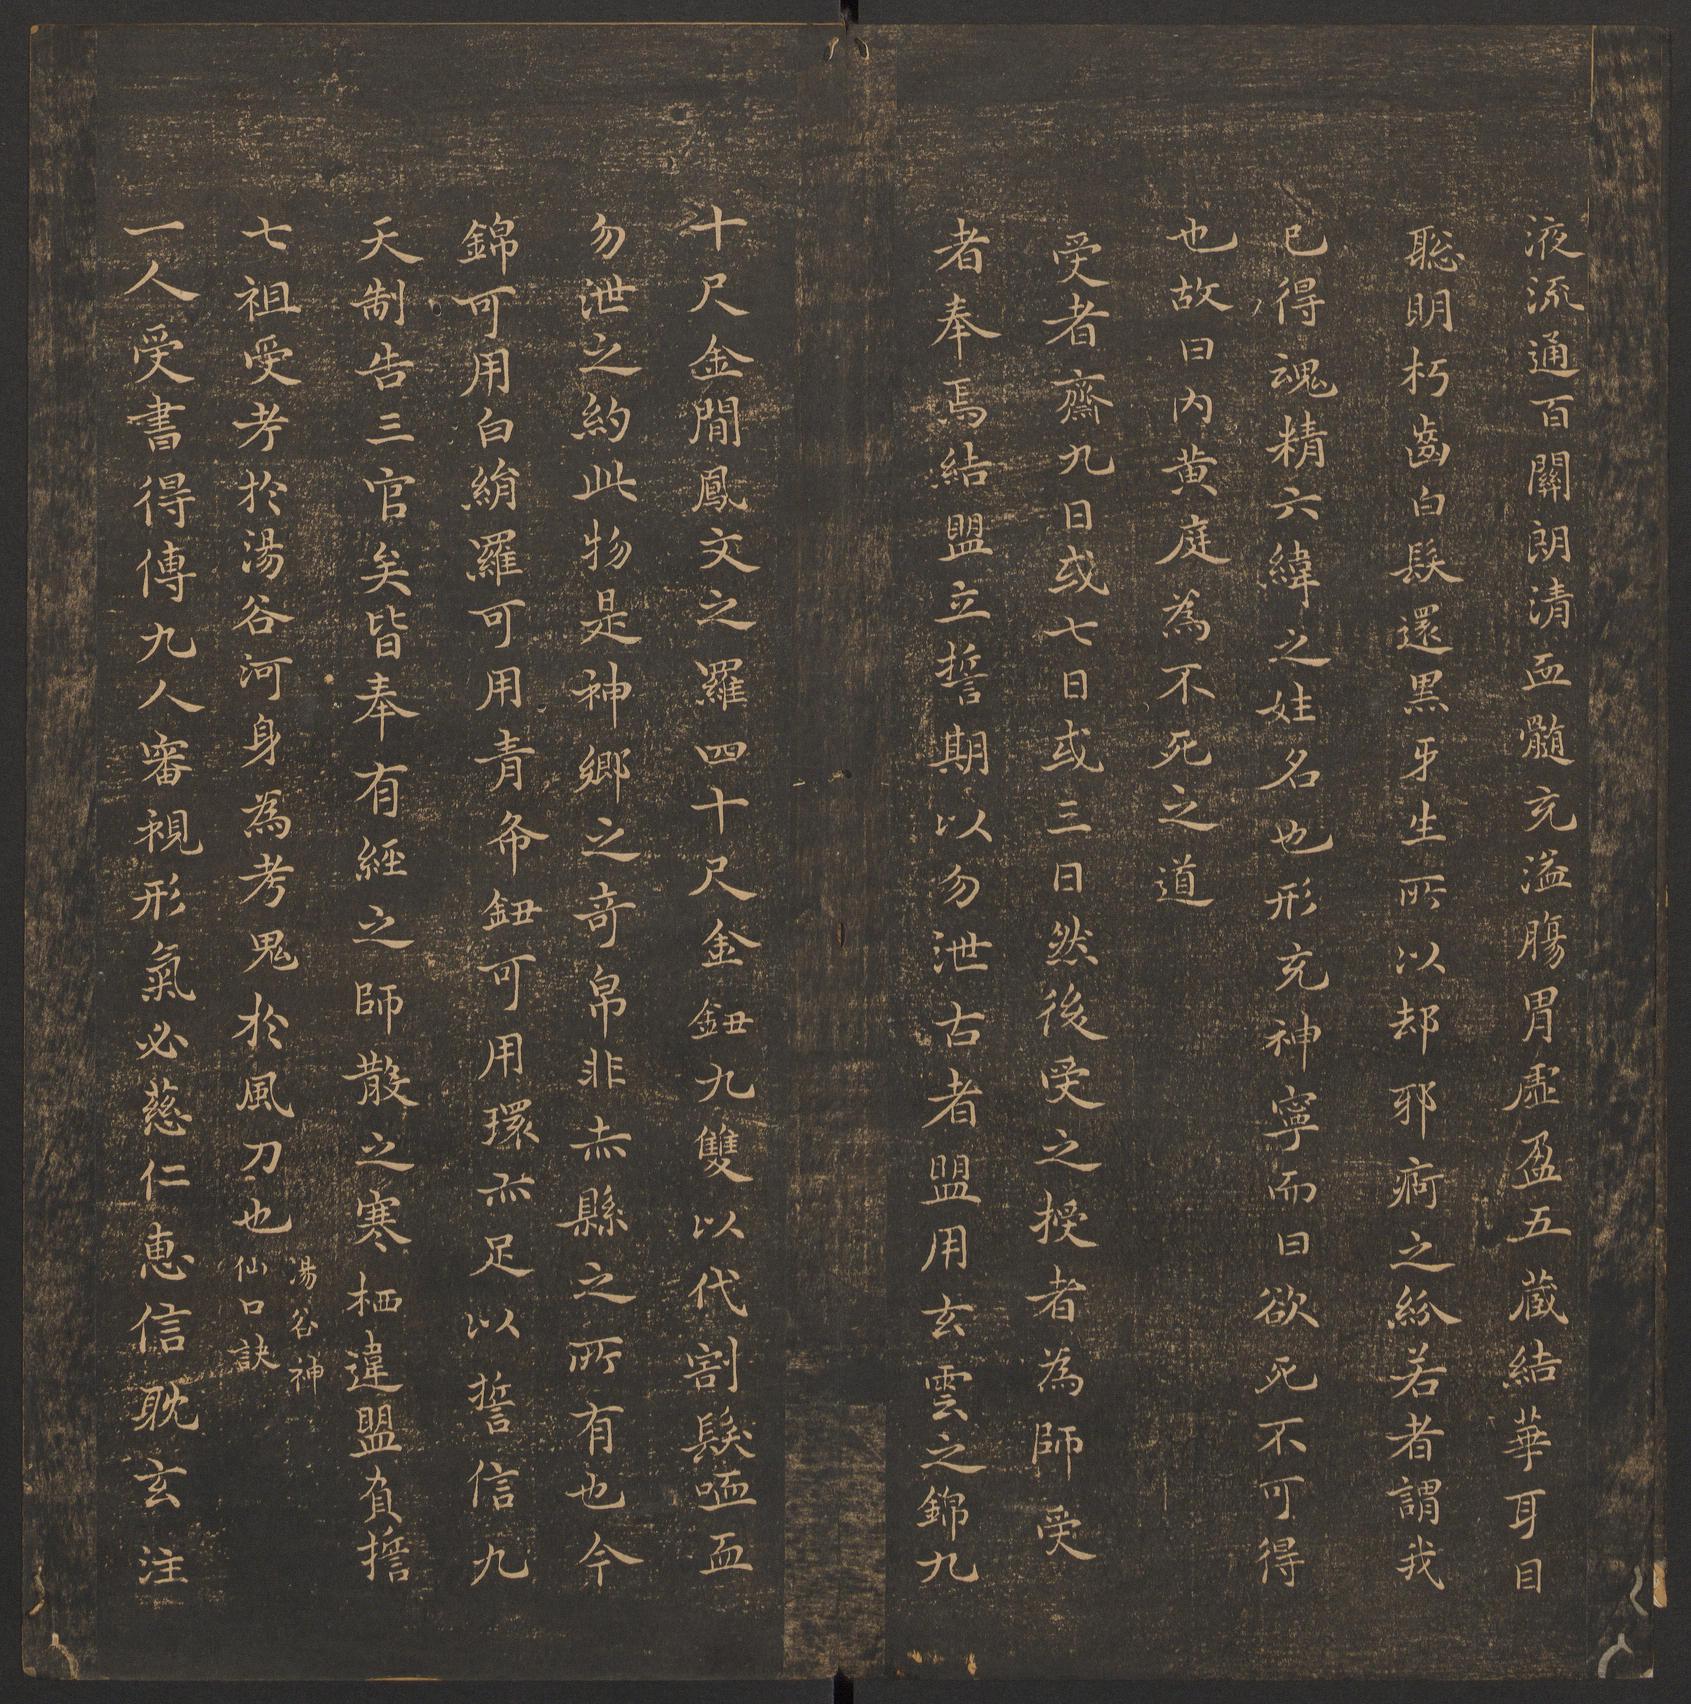 液流通百關朗清血髓充溢腸胃虛盈五藏結華耳目
聡明朽齒白髮還黑牙生所以却耶痾之紛若者謂我
已得魂精六緯之姓名也形充神寧而曰欲死不可得
也故曰內黃庭為不死之道
受者齋九日或七日或三日然後受之授者為師受
者奉焉結盟立誓期以勿泄古者盟用玄雲之錦九
十尺金簡鳳文之羅四十尺金鈕九雙以代割髮歃血
勿泄之約此物是神鄉之奇帛非赤縣之所有也今
錦可用白絹羅可用青布鈕可用環亦足以誓信九
天制告三官矣皆奉有經之師散之寒栖違盟負誓
七祖受考於湯谷河身為考鬼於風刀也
湯谷神
仙口訣
一人受書得傳九人審視形氣必慈仁惠信耽玄注